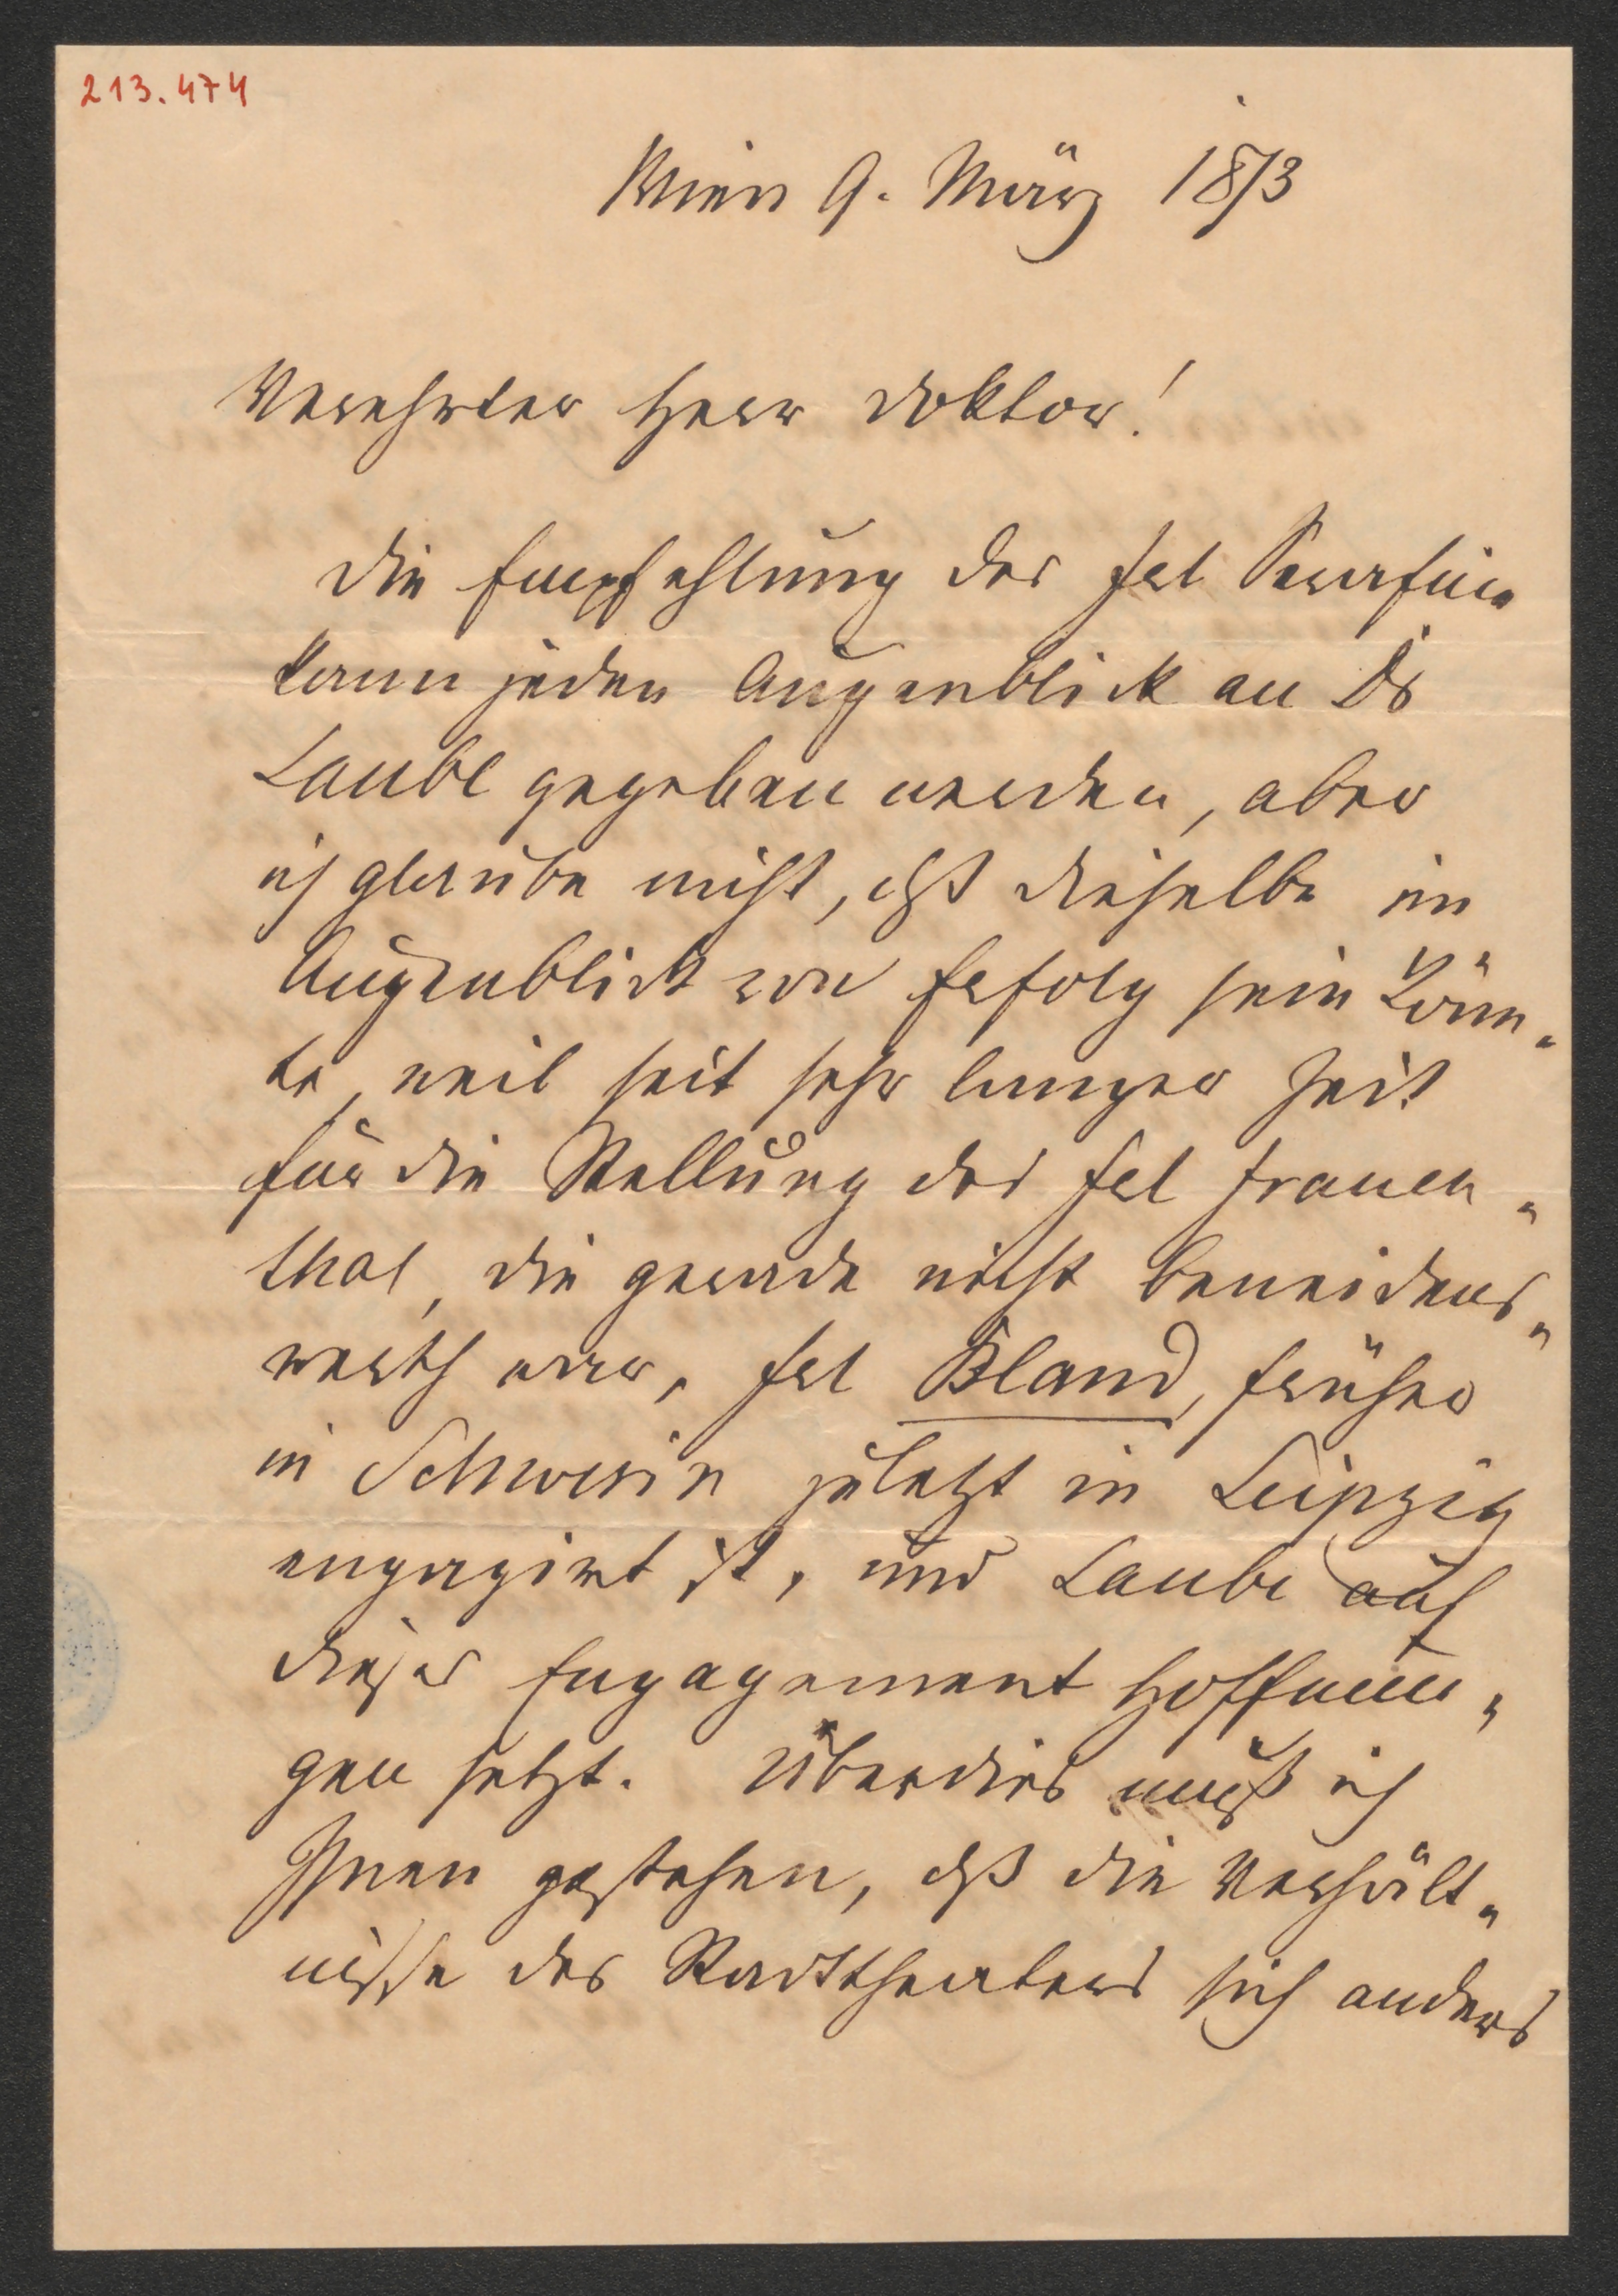 213.474
Wien 9. März 1873
Verehrter Herr Doktor!
Die Empfehlung des Frl
kann jeden Augenblick an Dr
Laube gegeben werden, aber
ich glaube nicht, dß dieselbe im
Augenblick von Erfolg sein könn„
te, weil seit sehr langer Zeit
für die Stellung des Frl Frauen„
thal, die gerade nicht beneidens„
werth war, Frl Bland, früher
in Schwerin zuletzt in Leipzig
engagirt ist, und Laube auf
dieses Engagement Hoffnun„
gen setzt. Überdies muß ich
Ihnen gestehen, dß die Verhält„
nisse des Stadttheaters sich anders